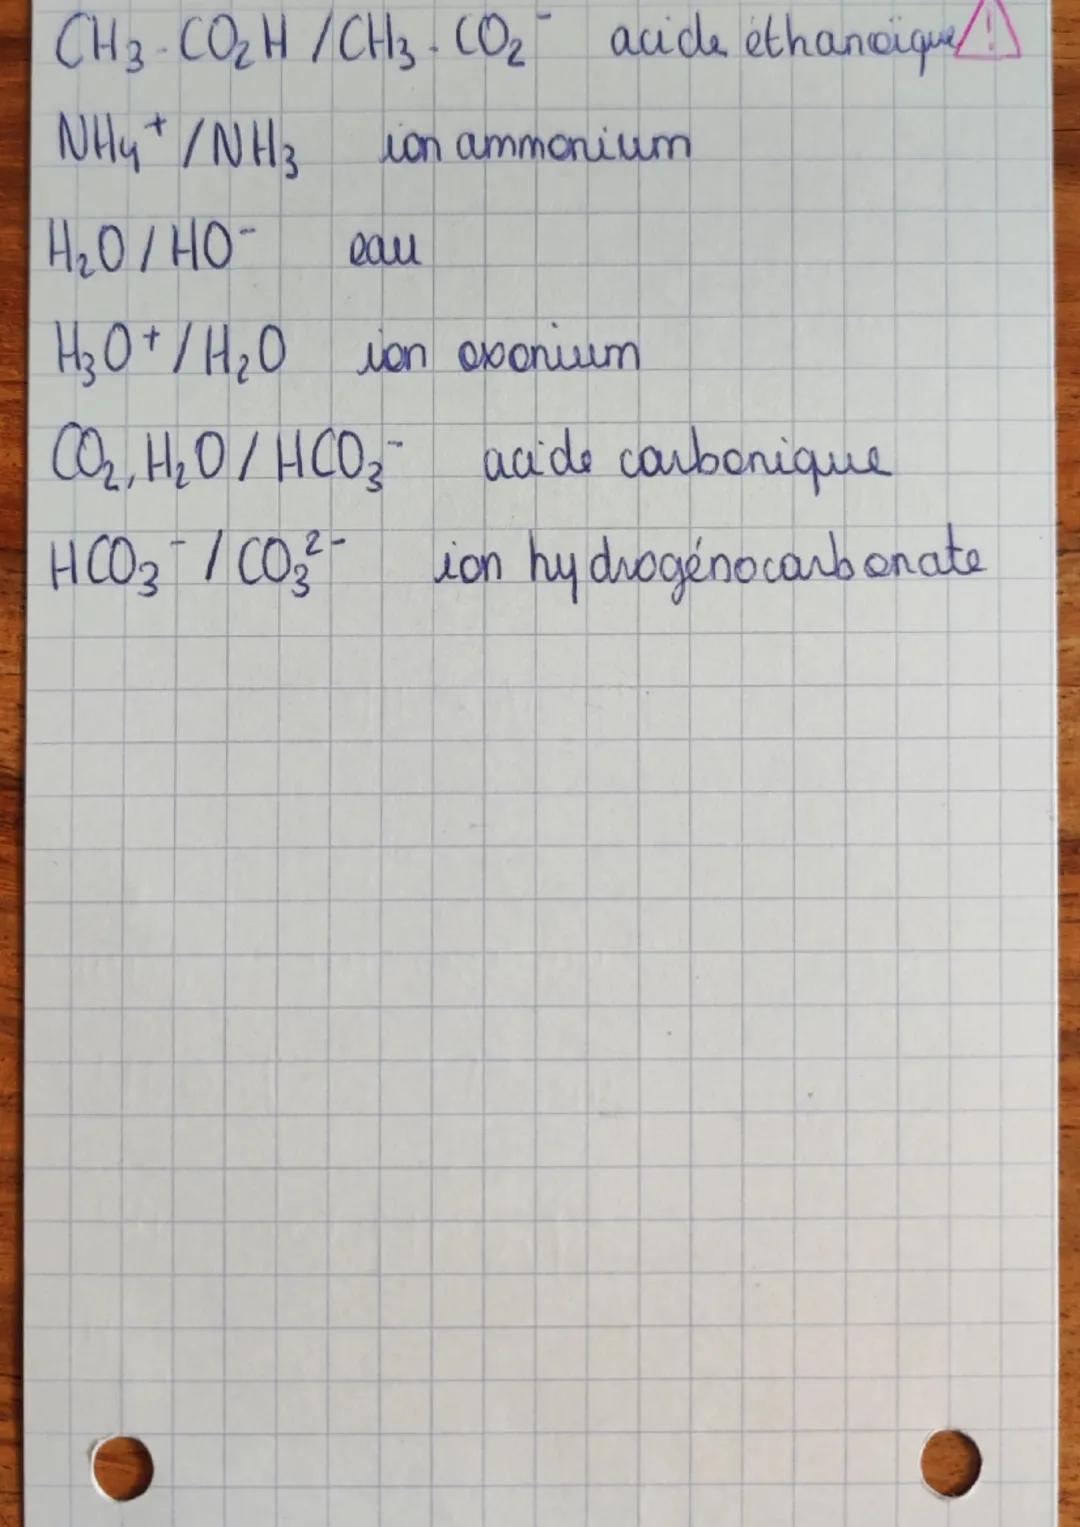 CH₃-CO₂H / CH₃-CO₂⁻ acide éthanoïque !
NH₄⁺ / NH₃ ion ammonium
H₂O / HO⁻ eau
H₃O⁺ / H₂O ion oxonium
CO₂, H₂O / HCO₃⁻ acide carbonique
HCO₃⁻ / CO₃²⁻ ion hydrogénocarbonate